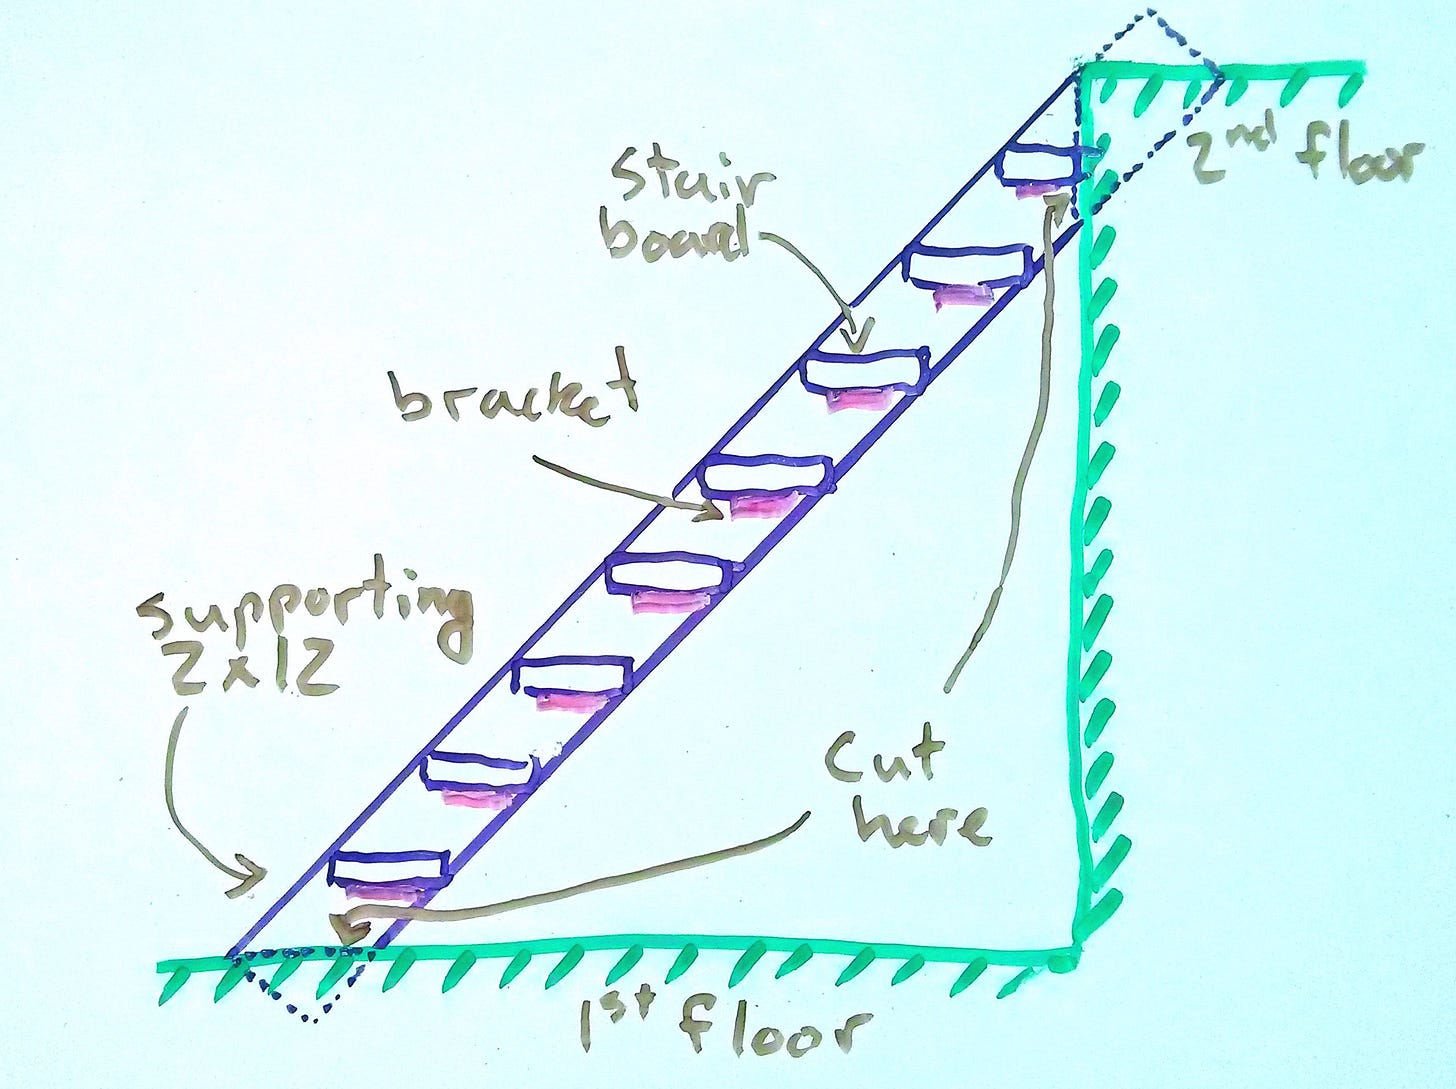 2nd floor
stair
board
bracket
supporting
2x12
cut
here
1st floor